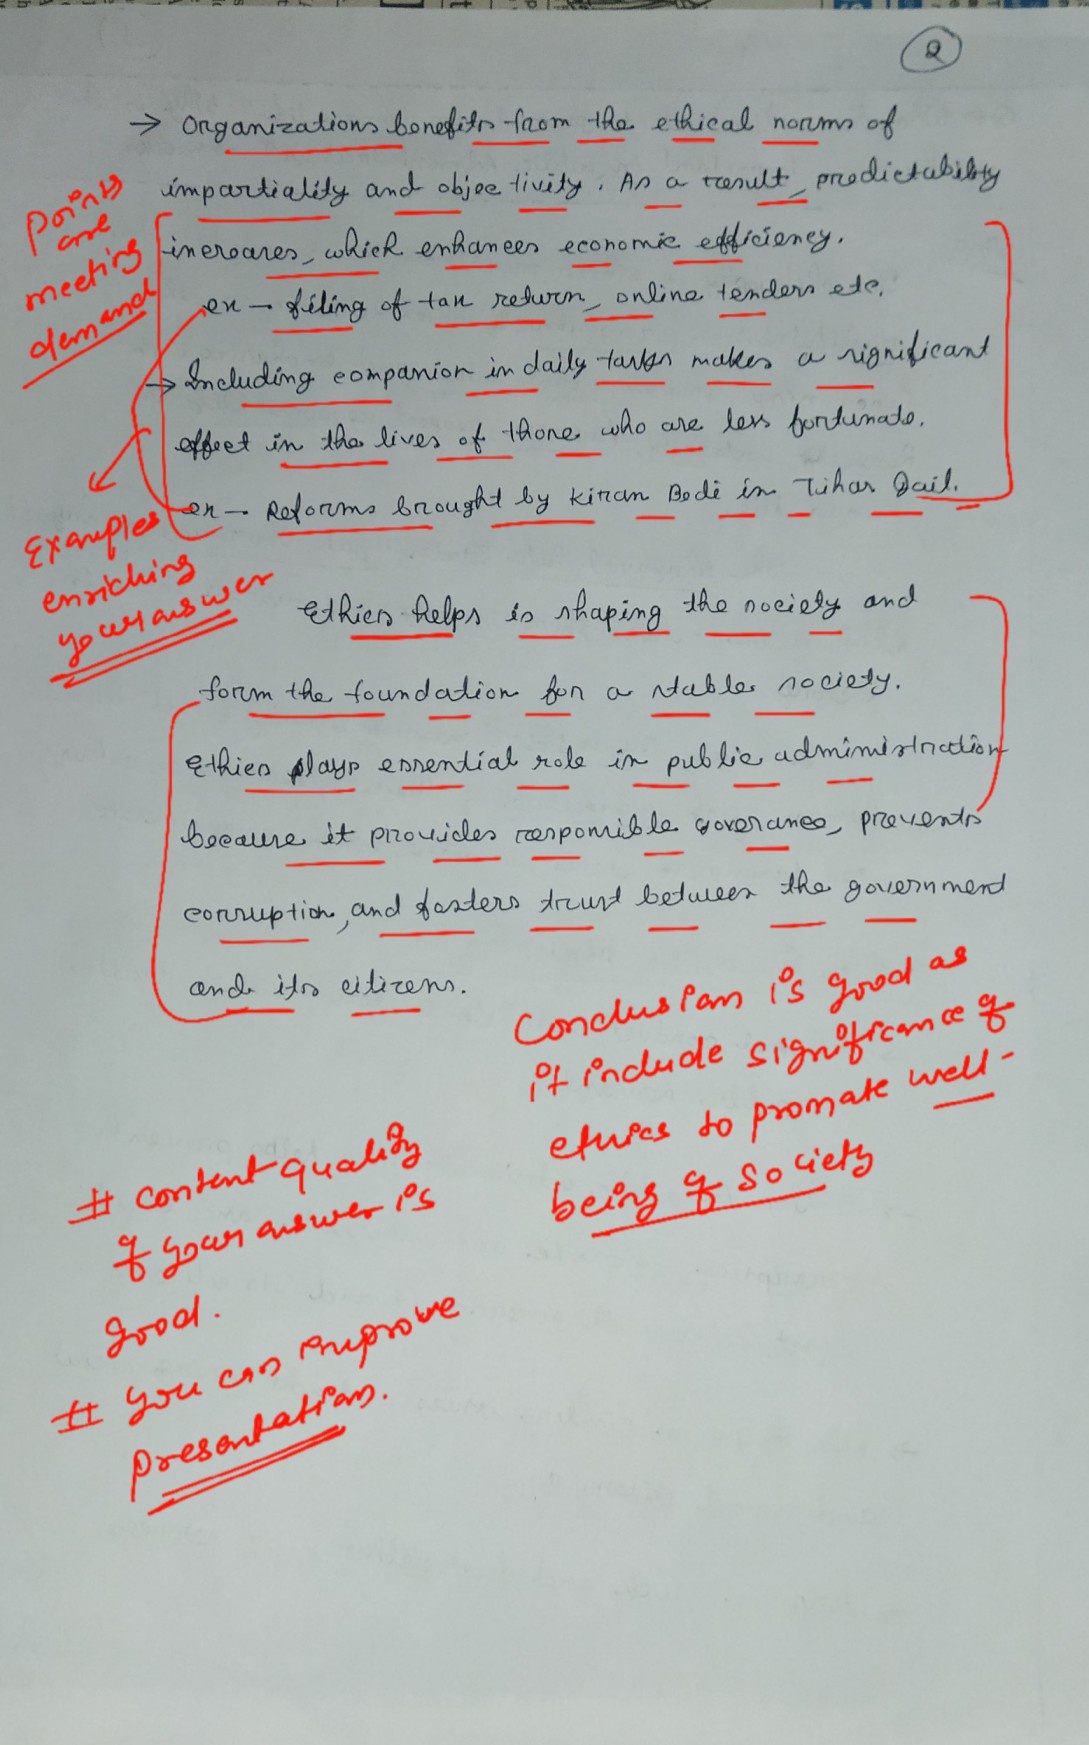 2
→ Organizations benefits from the ethical norms of
impartiality and objectivity. As a result, predictability
increares, which enhances economic efficiency.
ex → filing of tax return, online tenders etc.
→ Including companion in daily tasks makes a significant
effect in the lives of those who are less fortunate.
ex → Reforms brought by Kiran Bedi in Tihar Jail.
Points
are
meeting
demand
Examples
enriching
your answer
Ethics helps is shaping the society and
form the foundation for a stable society.
Ethics plays essential role in public administration
because it provides responsible goverance, prevents
corruption, and fosters trust between the government
and its citizens.
Conclusion is good as
it include significance of
ethics to promote well-
being of society
# content quality
of your answer is
good.
# You can improve
presentation.